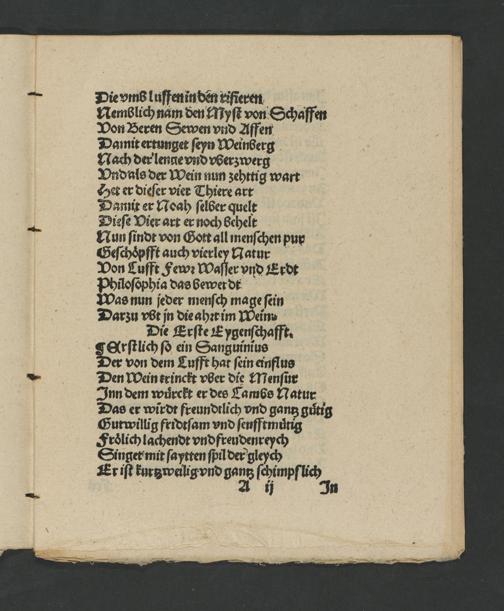 Die vmß luffen in den rifieren
Nemßlich nam den Myst von Schaffen
Von Beren Sewen vnd Affen
Damit ertunget seyn Weinberg
Nach der lenge vnd vberzwerg
Vnd als der Wein nun zehttig wart
Het er dieser vier Thiere art
Damit er Noah selber quelt
Diese Vier art er noch behelt
Nun sindt von Gott all menschen pur
Geschöpfft auch vierley Natur
Von Lufft Fewr Wasser vnd Erdt
Philosophia das bewerdt
Was nun jeder mensch mage sein
Darzu vbt jn die ahrt im Wein.
Die Erste Eygenschafft.
¶Erstlich so ein Sanguinius
Der von dem Lufft hat sein einflus
Den Wein trinckt vber die Mensur
Inn dem würckt er des Lambs Natur
Das er wirdt freundtlich vnd gantz gütig
Gutwillig fridtsam vnd senfftmütig
Frölich lachendt vnd freudenreych
Singet mit saytten spil der gleych
Er ist kurtzweilig vnd gantz schimpflich
A ij In